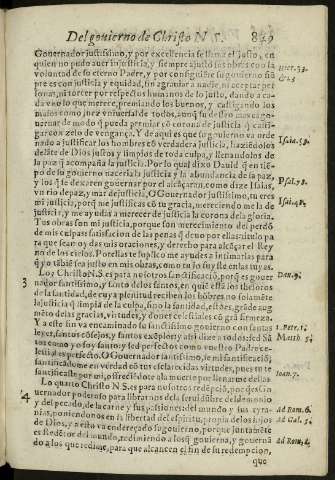 Del gouierno de Christo N. S. 829
Gouernador justissimo, y por excelencia se llama el Justo, en
quien no pudo auer injusticia, y siempre ajustò sus obras con la
voluntad de su eterno Padre, y por consiguiente su gouierno siẽ
pre es con justicia y equidad, sin agrauiar a nadie, ni aceptar per
sonas, ni torcer por respectos humanos de lo justo, dando a ca-
da vno lo que merece, premiando los buenos, y castigando los
malos como juez vniuersal de todos,
nar de modo q̃ pueda premiar cõ corona de justicia, q̃ casti-
gar con zelo de vengança. Y de aqui es que su gouierno va orde
nado a justificar los hombres cõ verdadera justicia, haziẽdolos
delãte de Dios justos y limpios de toda culpa, y llenandolos de
la paz q̃ acompaña la justicia. Por lo qual dixo Dauid q̃ en tiẽ-
po de su gouierno naceria la justicia y la abundancia de la paz,
y los q̃ se dexaren gouernar por el alcãçaran, como dize Isaias,
vn rio de paz, y mar de justicia. O Gouernador justissimo, tu eres
mi justicia, porq̃ me justificas cõ tu gracia, mereciendo me la de
justicia, y me ayudas a merecer de justicia la corona de la gloria.
Tus obras son mi justicia, porque son merecimiento del perdõ
de mis culpas, satisfacion de las penas q̃ deuo por ellas, titulo pa
ra que sean oydas mis oraciones, y derecho para alcãçar el Rey
no de los cielos. Por ellas te suplico me ayudes a imitarlas para
q̃ yo tãbiẽ sea justo en mis obras, como tu lo fuyste en las tuyas.
3 Lo 3. Christo N. S. es para nosotros sanctificaciõ, porq̃ es gouer
nador santissimo, y santo delos santos, en quiẽ està los thesoros
de la santidad, de cuya plenitud reciben los hõbres no solamẽte
la justicia q̃ limpia de la culpa, sino la santidad,
mẽto delas gracias, virtudes, y dones celestiales cõ grã firmeza.
Y a este fin va encaminado su sanctissimo gouierno con santas
leyes, santos cõsejos, y santos exẽplos; y assi dize a todos: sed Sã
tos como yo soy santo, y sed perfectos como vuestro Padre ce-
lestial es perfecto. O Gouernador santissimo, se mi santificaciõ;
santificame en verdad cõ tus esclarecidas virtudes, pues tu te
santificaste por mi, ofreciẽdote a la muerte por llenarme dellas.
4 Lo quarto Christo N. S. es para nosotros redẽpciõ, porq̃ es Go
uernador poderoso para librarnos de la seruidũbre del demonio
y del pecado, de la carne y sus passiones: del mundo y sus tyra-
nias, poniendonos en la libertad del espiritu, propia de los hijos
de Dios, y a esto va endereçado su gouierno, porque juntamẽte
es Redẽtor del mundo, redimiendo a los q̃ gouierna, y gouernã
do a los que redime, para que alcancen el fin de su redempcion,
que
Hier. 33.
Isai. 59.
Psal. 71.
Isai. 48.
Dan. 9.
1. Petr. 1.
Matth. 5.
Ioan. 7.
Ad Rom. 6.
Ad Gal. 5.
Ad Rom. 8.